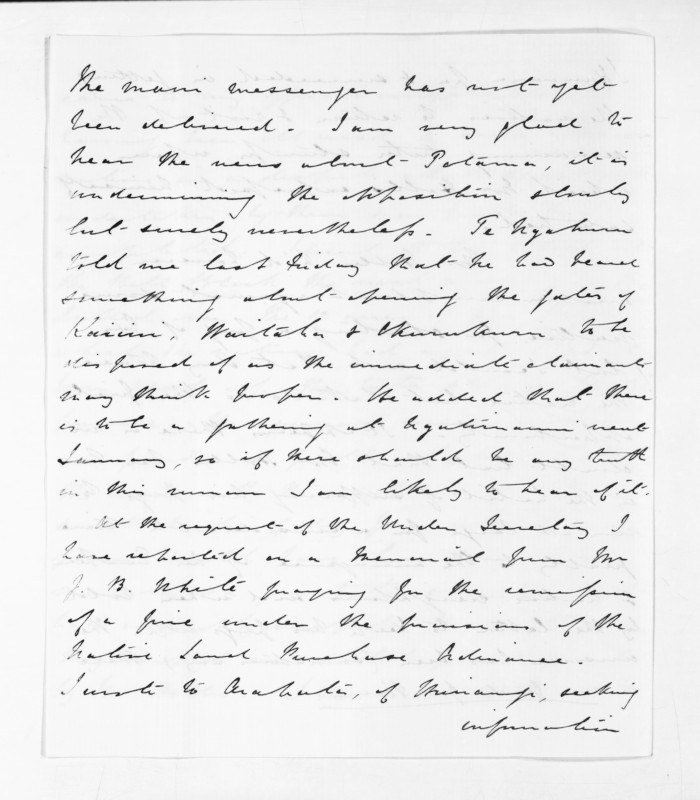 The maori messenger has not yet
been delivered. I am very glad to
hear the news about Patama, it is
undermining the opposition slowly
but surely nevertheless. Te Ngahuru
told me last Friday that he had heard
something about opening the gates of
Kaiiwi, Waitaha & Okurukuru to be
disposed of as the immediate claimants
may think proper. He added that there
is to be a gathering at Ngatimaru next
January, so if there should be any truth
in this rumour I am likely to hear of it.
At the request of the Under Secretary I
have reported on a Memorial from Mr
J. B. White praying for the remission
of a fine under the provisions of the
Native Land Purchase Ordinance.
I wrote to Arahata, of, seeking
information